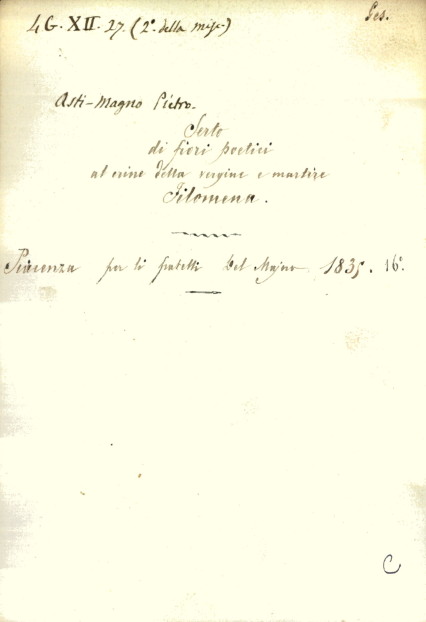 Ges.
4 G. XII. 27. (2°. della misc.)
Asti-Magno Pietro.
Serto
di fiori poetici
al crine della vergine e martire
Filomena.
Piacenza per li fratelli Del Majno 1835. 16°.
C